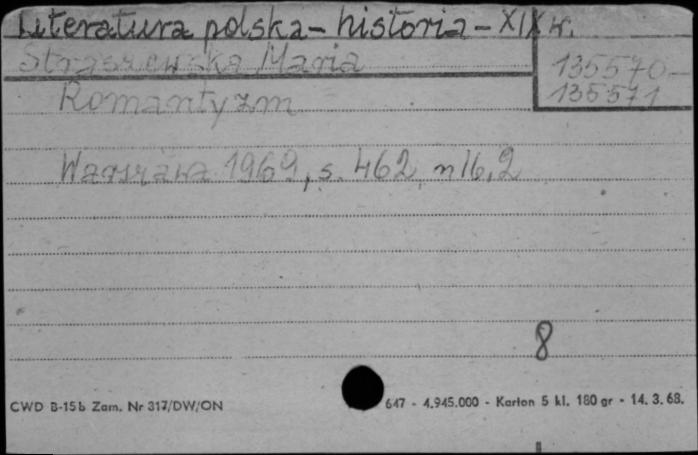 Literatura polska - historia - XIX w.
Straszewska Maria
135570-
135571
Romantyzm
Warszawa 1969, s. 462, nlb, 2
8
CWD B-15b Zam. Nr 317/DW/ON
647 - 4.945.000 - Karton 5 kl. 180 gr - 14. 3. 68.